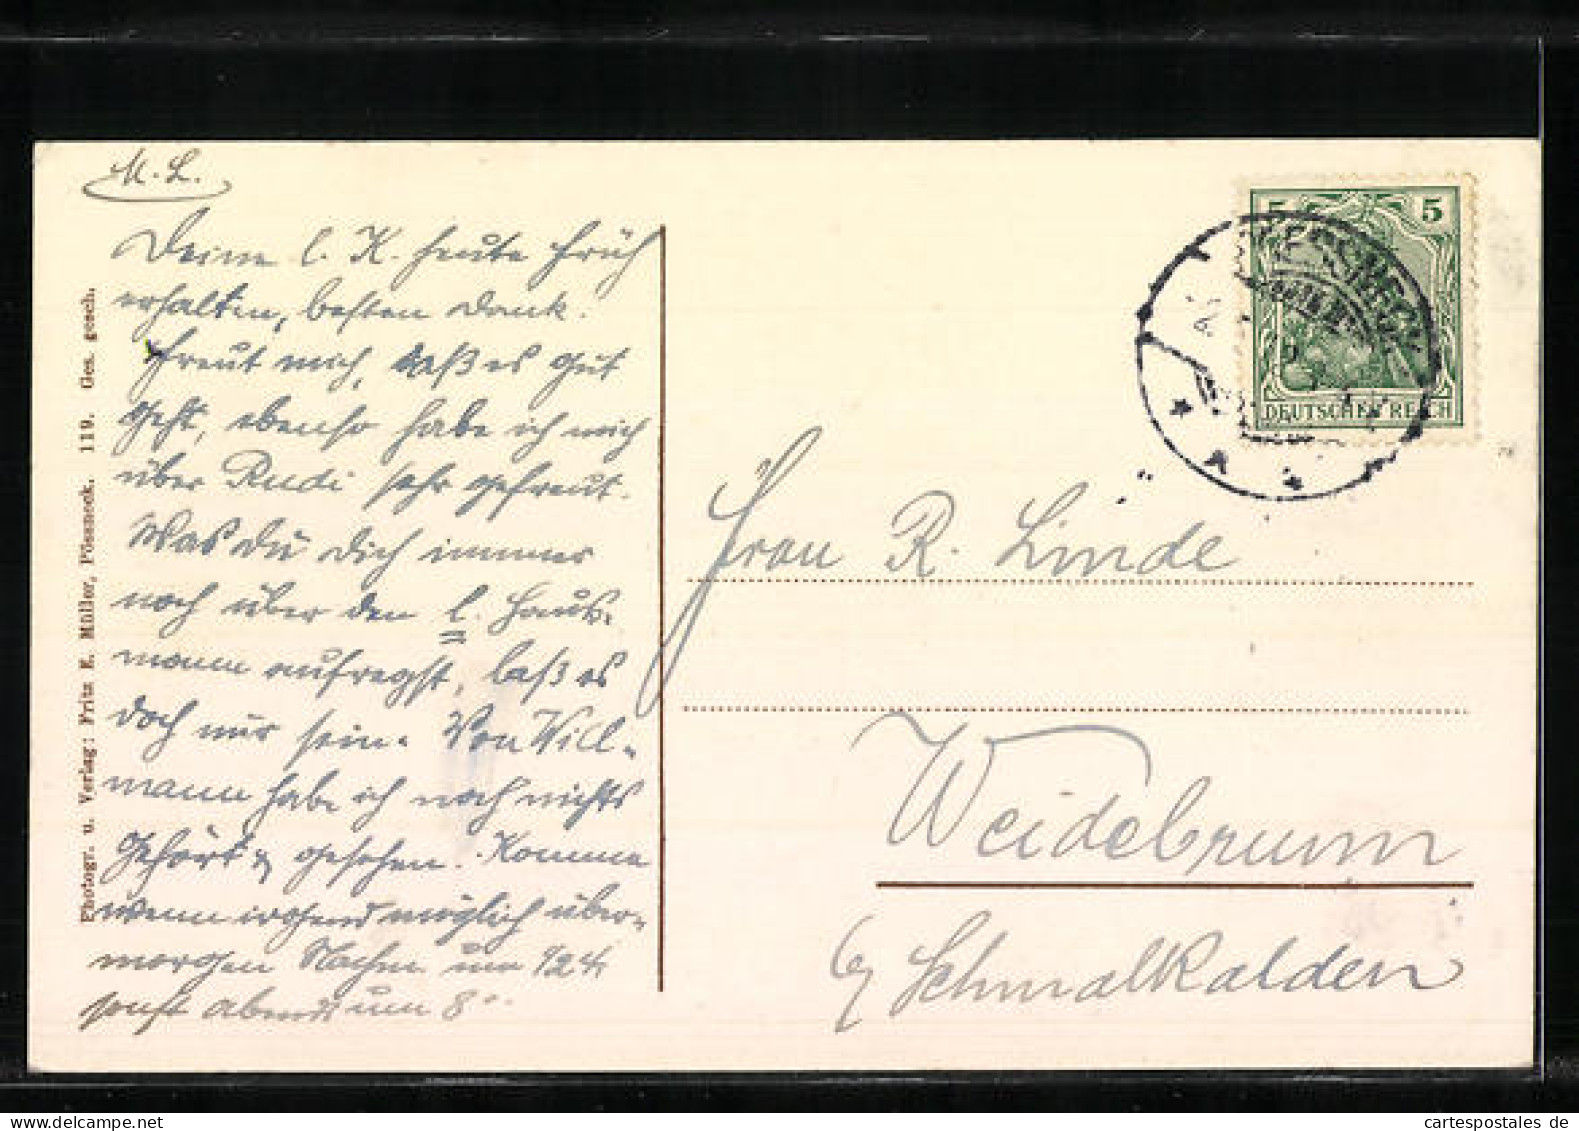 M. L.
Deine l. K. heute früh
erhalten, besten Dank.
Freut mich, daß es gut
geht, ebenso habe ich mich
über Rudi sehr gefreut.
Was Du Dich immer
noch über den l. Haus-
mann aufregst, laß es
doch nur sein. Von Will-
mann habe ich noch nichts
gehört & gesehen. Komme
wenn irgend möglich über-
morgen Nachm um 1/2 4
sonst abends um 8
Photogr. u. Verlag: Fritz E. Müller, Pössneck. 119. Ges. gesch.
5 5
DEUTSCHES REICH
Frau R. Linde
Weidebrunn
b/ Schmalkalden
www.delcampe.net
cartespostales de